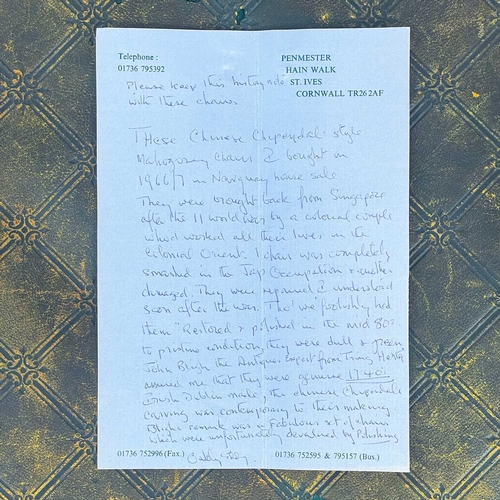 Telephone :
01736 795392
PENMESTER
HAIN WALK
ST. IVES
CORNWALL TR26 2AF
Please keep this history
with these chairs
These Chinese Chipendale style
Mahogany chairs I bought in
1966/7 in Newquay house sale
They were brought back from Singapore
after the II world war by a colonial couple
who'd worked all their lives in the
Colonial Orient. 1 chair was completely
smashed in the Jap Occupation & another
damaged. They were repaired I understood
soon after the war. Tho' we foolishly had
them "Restored & polished in the mid 80's
to pristine condition, they were dull & green
John Bligh the Antiques Expert from Tring Herts
assured me that they were genuine 1740's
Irish Dublin made, the chinese Chipendale
carving was contemporary to their making
Blighs remark was a Fabulous set of chairs
which were unfortunately devalued by Polishing
01736 752996 (Fax.)
01736 752595 & 795157 (Bus.)